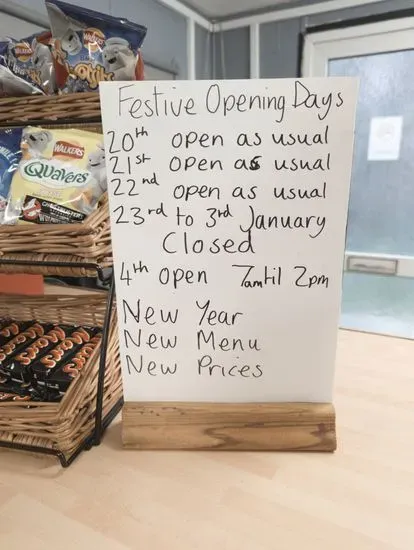 Festive Opening Days
20th open as usual
21st open as usual
22nd open as usual
23rd to 3rd January
Closed
4th open 7am til 2pm
New Year
New Menu
New Prices
WALKERS
Quavers